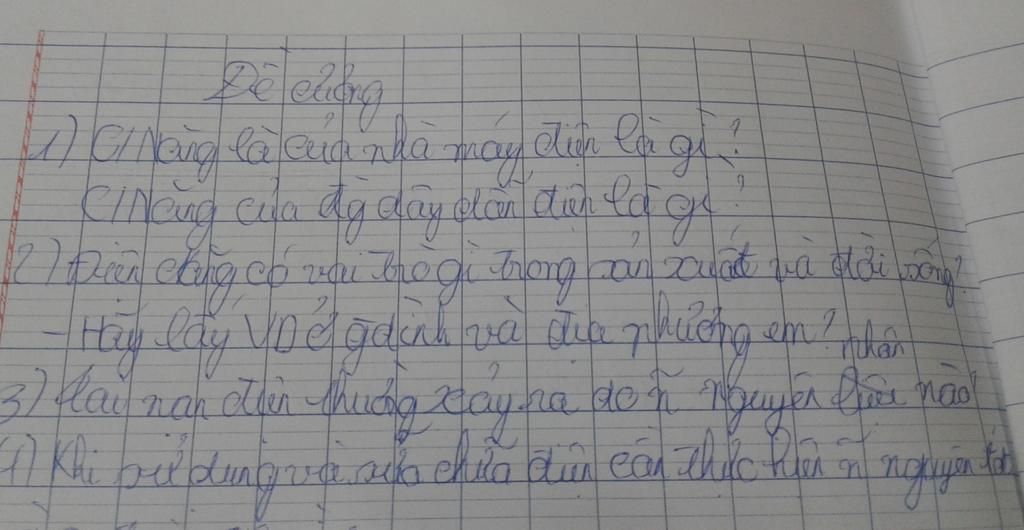 Đề cương
1) C/Năng là của nhà máy điện là gì?
C/Năng của đg dây dẫn điện là gì?
2) Điện năng có vai trò gì trong sản xuất và đời sống?
- Hãy lấy VD ở gđình và địa phương em?
nhân
3) Tai nạn điện thường xảy ra do n~ nguyên nào?
4) Khi sử dụng và sửa chữa điện cần thực hiện n~ nguyên tắc